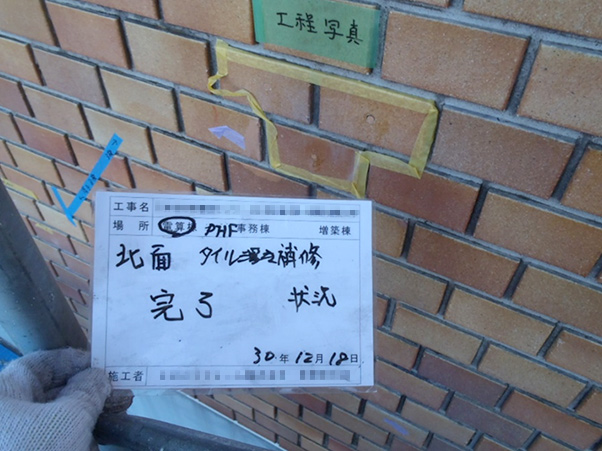 工程写真
工事名
場所 電算棟 PHF 事務棟 増築棟
北面 タイル浮き補修
完了 状況
30年12月18日
施工者